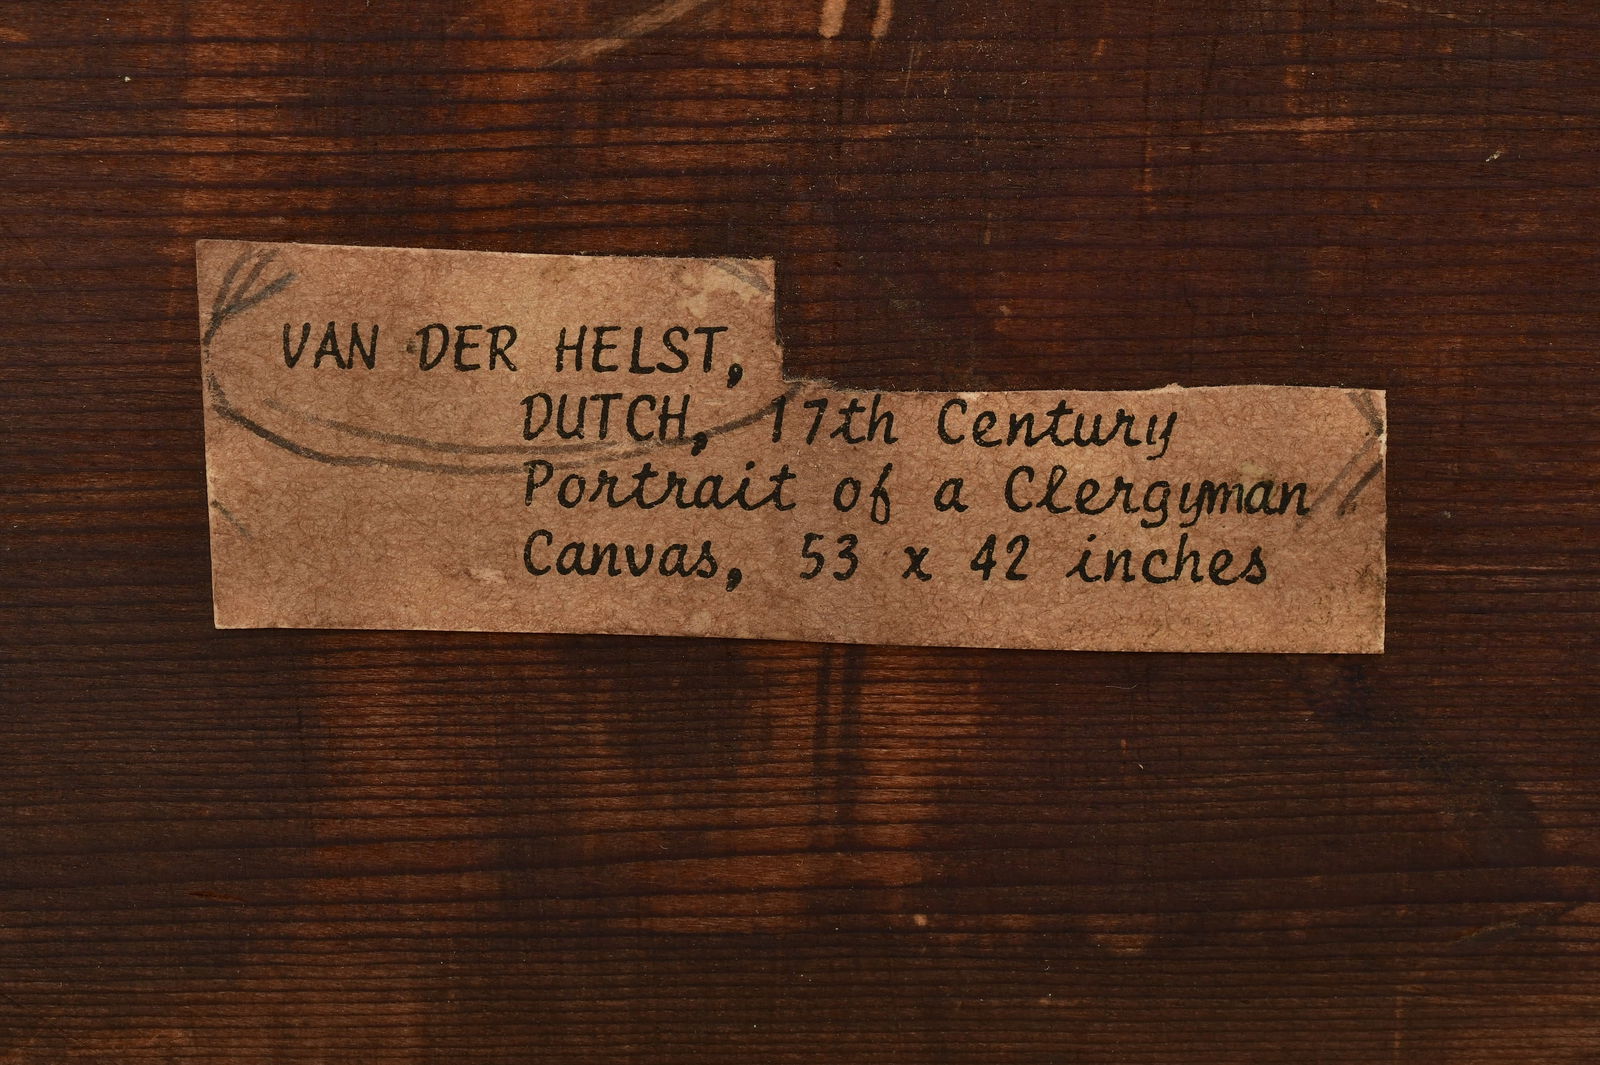 VAN DER HELST,
DUTCH, 17th Century
Portrait of a Clergyman
Canvas, 53 x 42 inches